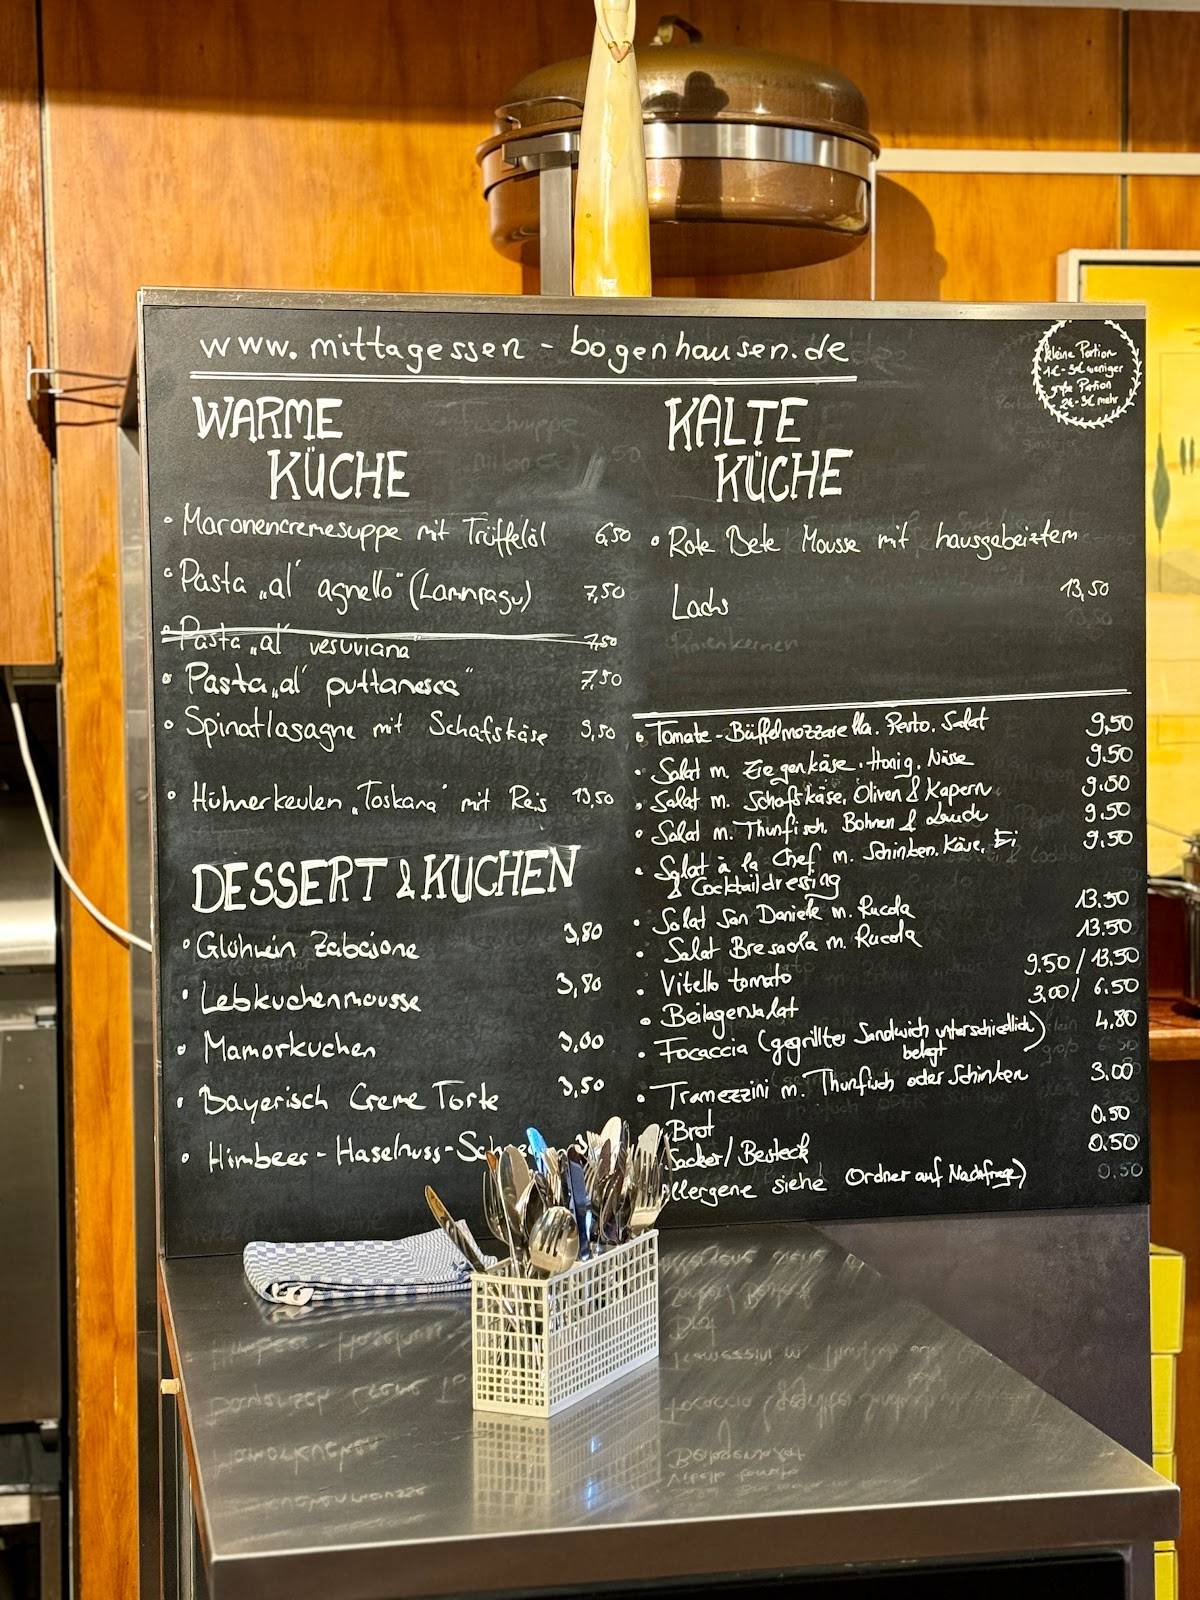 www.mittagessen-bogenhausen.de
kleine Portion
1€-3€ weniger
große Portion
2€-3€ mehr
WARME
KÜCHE
• Maronencremesuppe mit Trüffelöl 6,50
• Pasta „al' agnello" (Lammragu) 7,50
• Pasta „al' vesuviana 7,50
• Pasta „al' puttanesca" 7,50
• Spinatlasagne mit Schafskäse 9,50
• Hühnerkeulen „Toskana" mit Reis 13,50
DESSERT & KUCHEN
• Glühwein Zabaione 3,80
• Lebkuchenmousse 3,80
• Mamorkuchen 3,00
• Bayerisch Creme Torte 3,50
• Himbeer-Haselnuss-
KALTE
KÜCHE
• Rote Bete Mousse mit hausgebeiztem
Lachs 13,50
Pinienkernen
• Tomate-Büffelmozzarella. Pesto. Salat 9,50
• Salat m. Ziegenkäse. Honig. Nüsse 9.50
• Salat m. Schafskäse, Oliven & Kapern 9.50
• Salat m. Thunfisch, Bohnen & Lauch 9.50
• Salat à la Chef m. Schinken. Käse, Ei 9,50
& Cocktaildressing
• Salat San Daniele m. Rucola 13.50
• Salat Bresaola m. Rucola 13.50
• Vitello tomato 9.50 / 13.50
• Beilagensalat 3.00 / 6.50
• Focaccia (gegrilltes Sandwich unterschiedlich) 4.80
belegt
• Tramezzini m. Thunfisch oder Schinken 3.00
Brot 0.50
/ Besteck 0.50
Allergene siehe (Ordner auf Nachfrage)
0.50